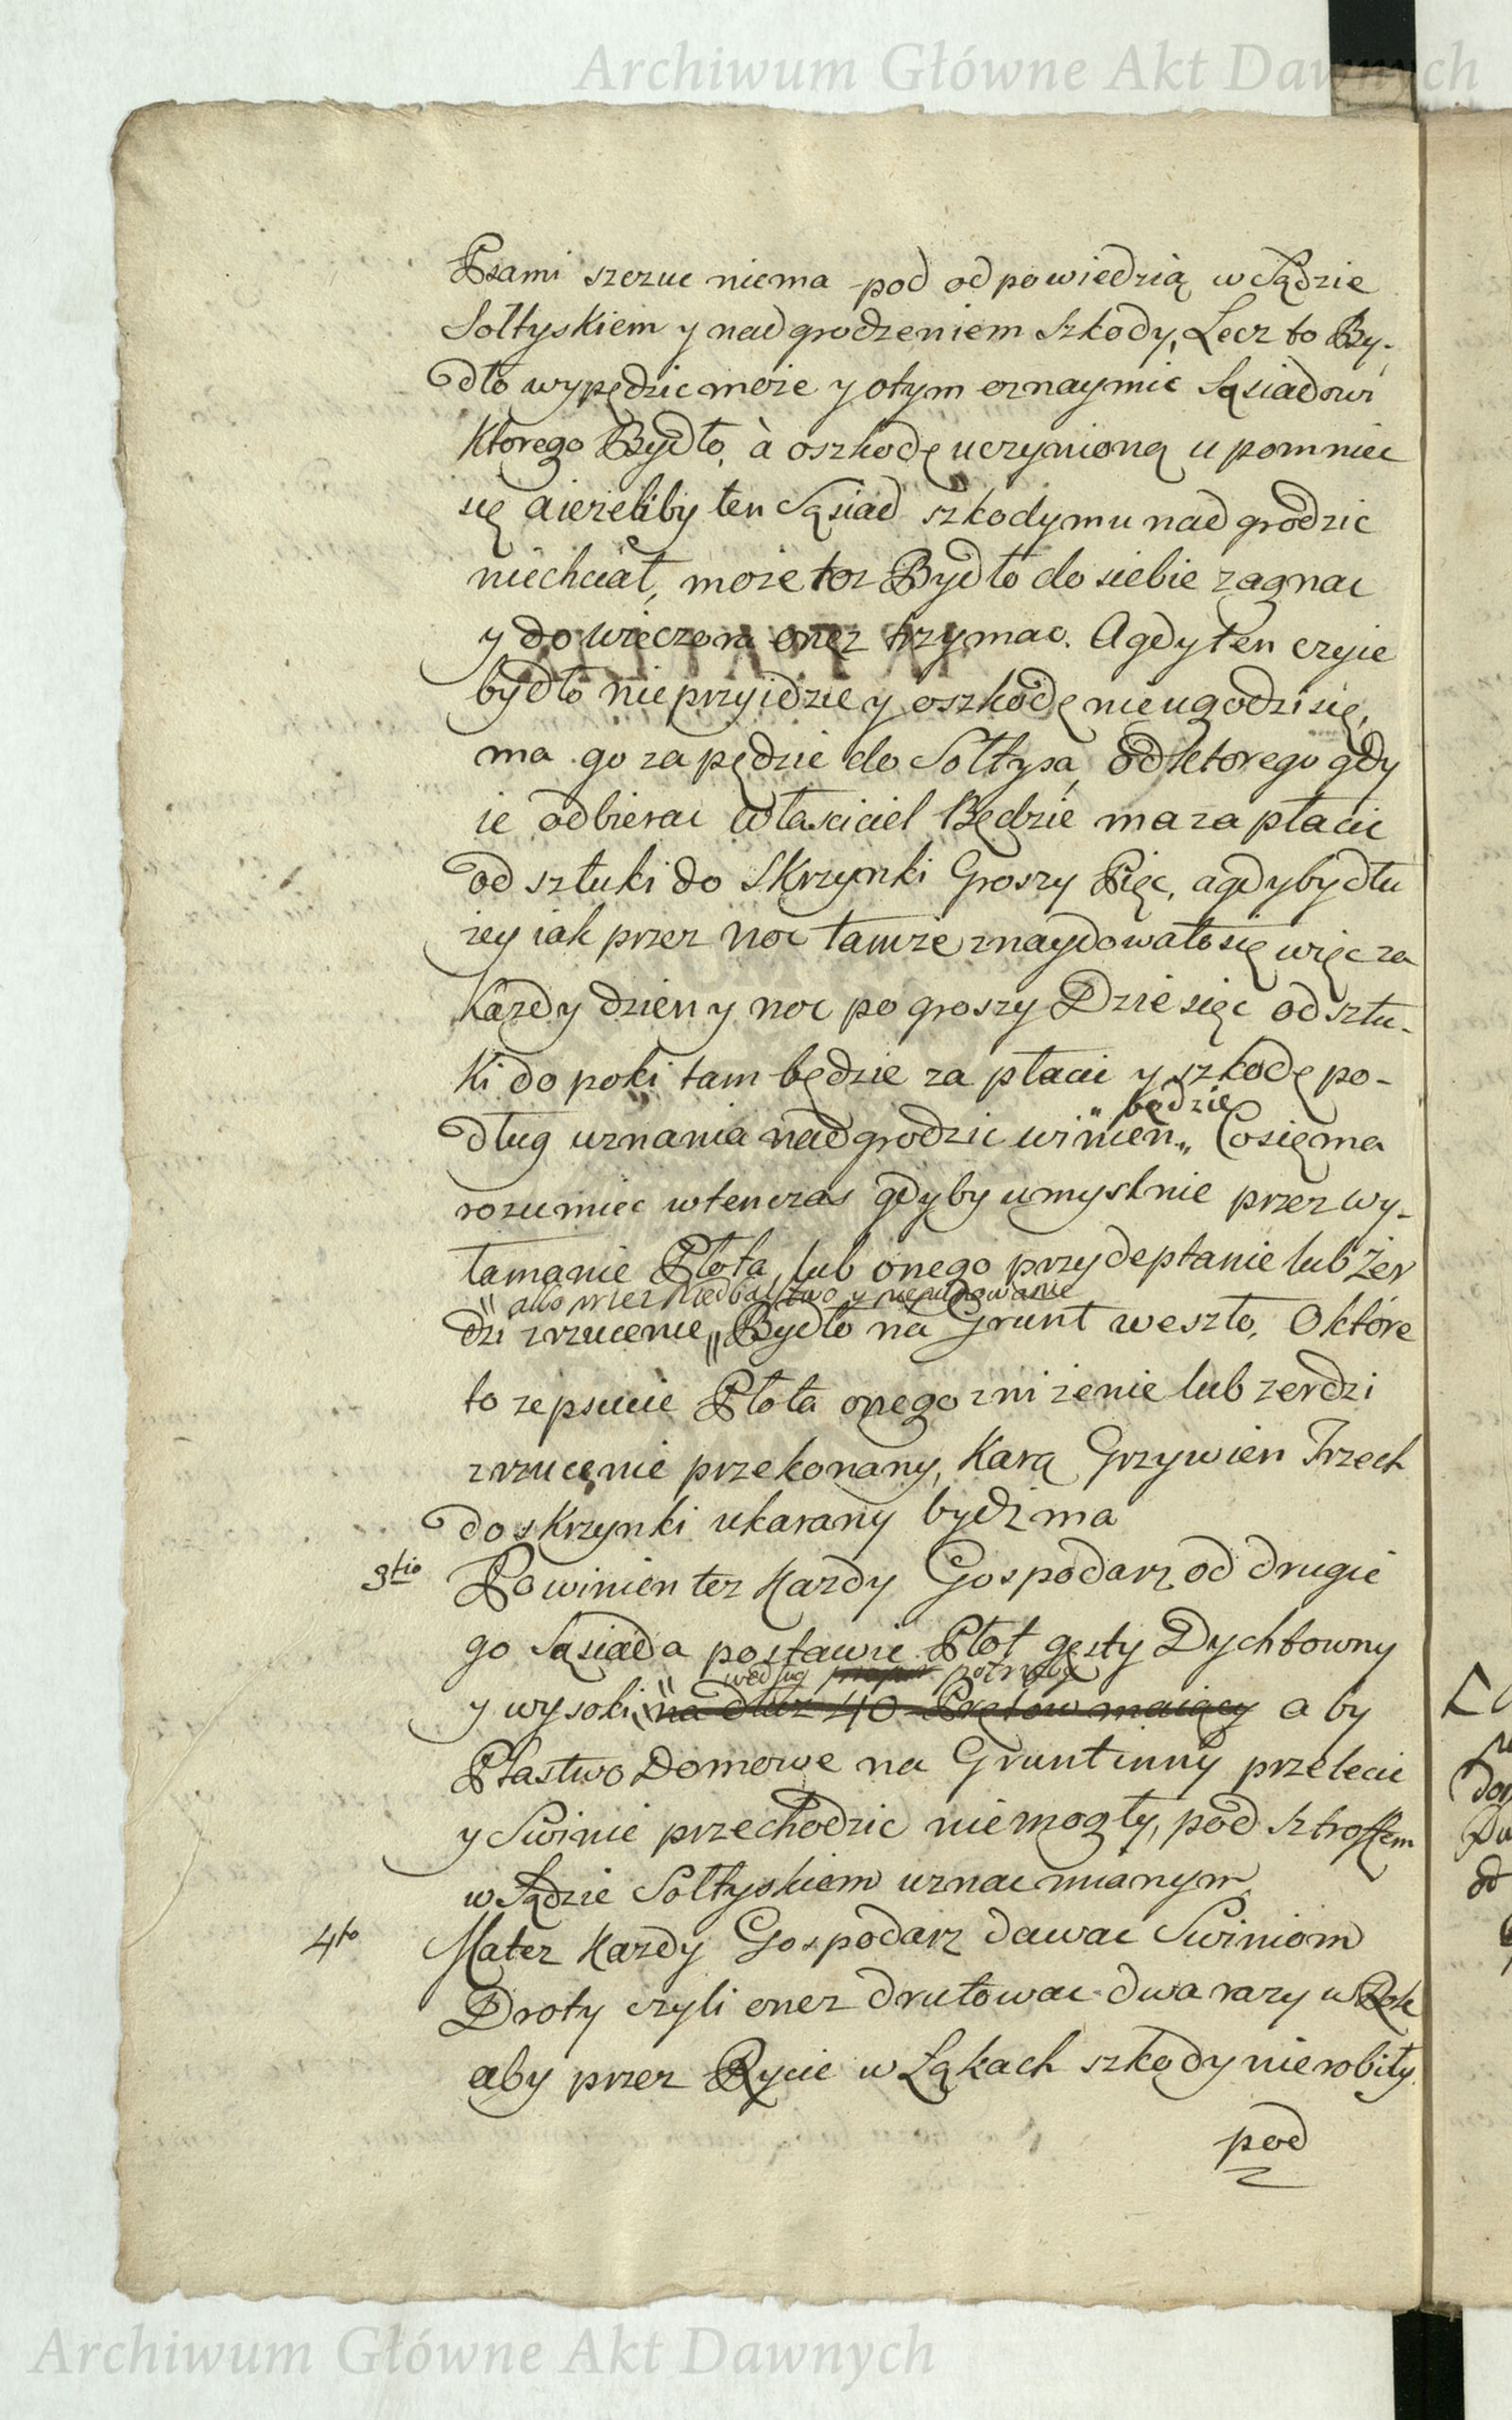 Archiwum Główne Akt Dawnych
Psami szczuc niema pod odpowiedzią w Sądzie
Sołtyskiem y nadgrodzeniem Szkody, Lecz to By-
dło wypędzic może y otym oznaymic Sąsiadowi
Ktorego Bydło, à oszkodę uczynioną upomniec
się aieżeliby ten Sąsiad szkodymu nadgrodzic
niechciał, może toz Bydło do siebie zagnac
y do wieczora onez trzymac. Agdy ten czyie
bydło nieprzyidzie y oszkodę nieugodzi się,
ma go zapędzic do Sołtysa, od ktorego gdy
ie odbierac właściciel Będzie ma zapłacic
od sztuki do Skrzynki Groszy Pięc, agdyby dłu
zey iak przez noc tamze znaydowało się więc za
Kazdy dzien y noc po groszy Dziesięc od sztu-
ki do poki tam będzie zapłaci y szkodę po-
" będzie
dług uznania nadgrodzic winien„ Co się ma
rozumiec wtenczas gdyby umyslnie przez wy-
łamanie Płota, lub onego przydeptanie lub Żer
" albo przez niedbalstwo y niepilnowanie
dzi zrzucenie„ Bydło na Grunt weszło, O które
to zepsucie Płota onego zniżenie lub zerdzi
zrzucenie przekonany, Karą Grzywien Trzech
do skrzynki ukarany bydź ma
3tio Powinien tez Kazdy Gospodarz od drugie
go Sąsiada postawic Płot gęsty Dychtowny
według potrzeby
y wysoki " na dłuz 40 Prętow maiący aby
Ptastwo Domowe na Grunt inny przelecic
y Swinie przechodzic niemogły, pod sztroffem
w Sądzie Sołtyskiem uznac mianym
4to Ma tez Kazdy Gospodarz dawac Swiniom
Droty czyli onez drutowac dwa razy w Rok
aby przez Rycie w Łąkach szkody nierobiły
pod
Archiwum Główne Akt Dawnych